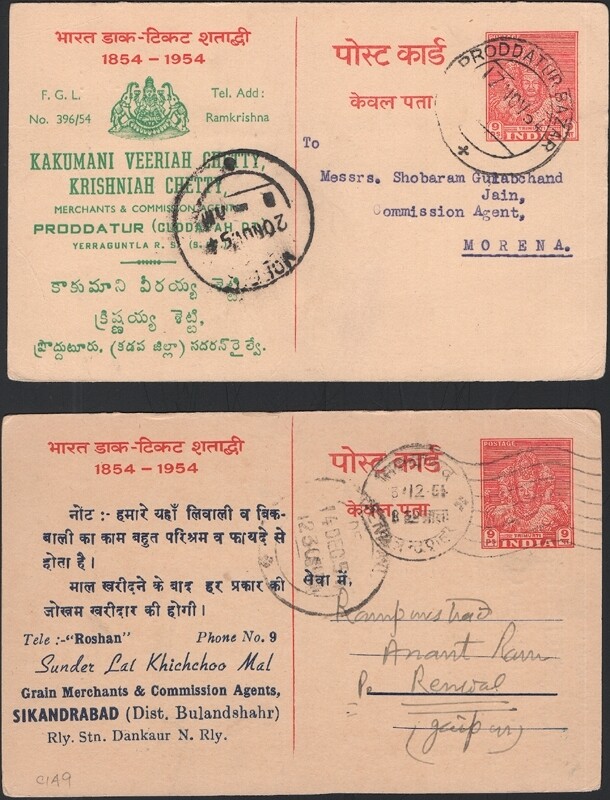 भारत डाक-टिकट शताद्वी
1854 - 1954
F. G. L.
No. 396/54
Tel. Add:
Ramkrishna
KAKUMANI VEERIAH CHETTY,
KRISHNIAH CHETTY
MERCHANTS & COMMISSION AGENTS
PRODDATUR (CUDDAPAH DT.)
YERRAGUNTLA R. S.
కాకుమాని వీరయ్య శెట్టి
క్రిష్ణయ్య శెట్టి,
ప్రొద్దుటూరు, (కడప జిల్లా) సదరన్ రైల్వే.
पोस्ट कार्ड
केवल पता
POSTAGE
9 Ps
INDIA
PRODDATUR BAZAR
17 NOV 54
20 NOV 54
To
Messrs. Shobaram Gulabchand
Jain,
Commission Agent,
MORENA.
भारत डाक-टिकट शताद्वी
1854 - 1954
नोंट :- हमारे यहाँ लिवाली व बिक-
बाली का काम बहुत परिश्रम व फायदे से
होता है।
माल खरीदने के बाद हर प्रकार की
जोखम खरीदार की होगी।
Tele :-"Roshan" Phone No. 9
Sunder Lal Khichchoo Mal
Grain Merchants & Commission Agents,
SIKANDRABAD (Dist. Bulandshahr)
Rly. Stn. Dankaur N. Rly.
C1A9
पोस्ट कार्ड
केवल पता
POSTAGE
9 Ps
INDIA
14 DEC 5
12.30
सेवा में,
Anant Ram
Po Renwal
(Jaipur)